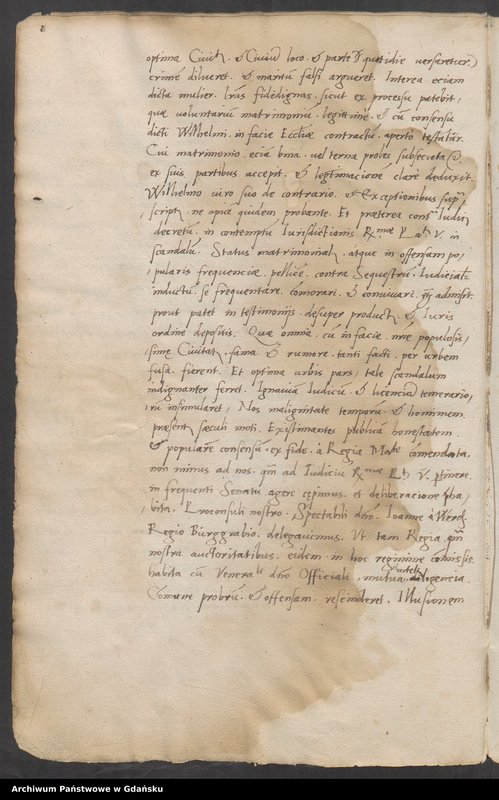 optima Civit. et Civiu loco. et parte quotidie versaretur
crimē dilueret. et maritū falsi argueret. Interea eciam
dicta mulier lras fidedignas. sicut ex processu patebit,
quæ voluntariū matrimoniū. legittime. et cū consensu
dicti Wilhelmi. in facie Eccliæ contractū. aperto testatur.
Cui matrimonio. eciā bina. vel terna proles subsecuta
ex suis partibus accepit. et legitimacionē clare deduxit.
Wilhelmo viro suo de contrario. et Exceptionibus sup
script ne apicē quidem probante. Et præterea contra Iudicii
decretū. in contemptū Iurisdictionis R mæ P V. in
scandalū. Status matrimonial. atque in offensam po,
pularis frequenciæ. pellicē. contra Sequestrū. Iudicialē
inductum. se frequentare. cōmorari. et convivari. admisit.
prout patet in testimonijs. desuper product. et Iuris
ordine depositis. Quæ omnia. cū in facie. nræ populosis,
simæ Civitat. fama. et rumore. tanti facti. per urbem
fusa. fierent. Et optima urbis pars, tale scandalum
indignanter ferret. Ignaviā Iudicū. et licenciā temerario,
rū insimularet, Nos malignitate temporū. et hominum.
præsent sæculi moti. Existimantes publicā honestatem
populare consensu. ex fide. à Regia Mate comendata.
non minus ad nos. qm ad Iudiciū R mæ P V. ptinere.
in frequenti Senatu agere cepimus. et deliberacione pha,
bita. Proconsuli nostro. Spectabili dno. Ioanne à Werd.
Regio Burggrabio. delegavimus. Ut tam Regia. qm
nostra auctoritatibus. eidem. in hoc regimine comissis.
habita cū Venerali dno Officiali, mutua intelligencia.
Comune probrū. et offensam. rescinderet, Illusionem
Archiwum Państwowe w Gdańsku